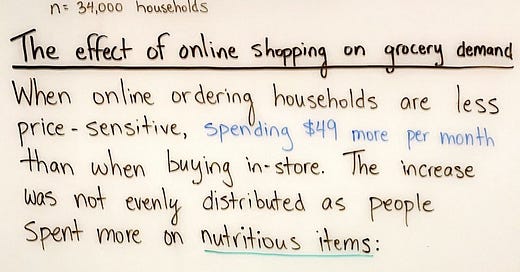 n= 34,000 households
The effect of online shopping on grocery demand
When online ordering households are less
price-sensitive, spending $49 more per month
than when buying in-store. The increase
was not evenly distributed as people
Spent more on nutritious items: